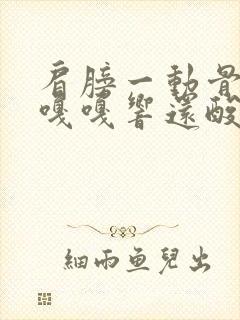 肩膀一動骨
嘎嘎響還酸
細雨魚兒出